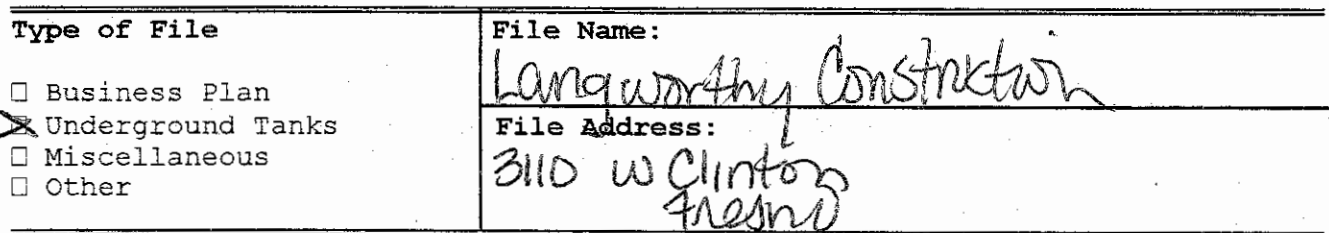 Type of File
☐ Business Plan
☒ Underground Tanks
☐ Miscellaneous
☐ Other
File Name:
Langworthy Construction
File Address:
3110 W Clinton
Fresno